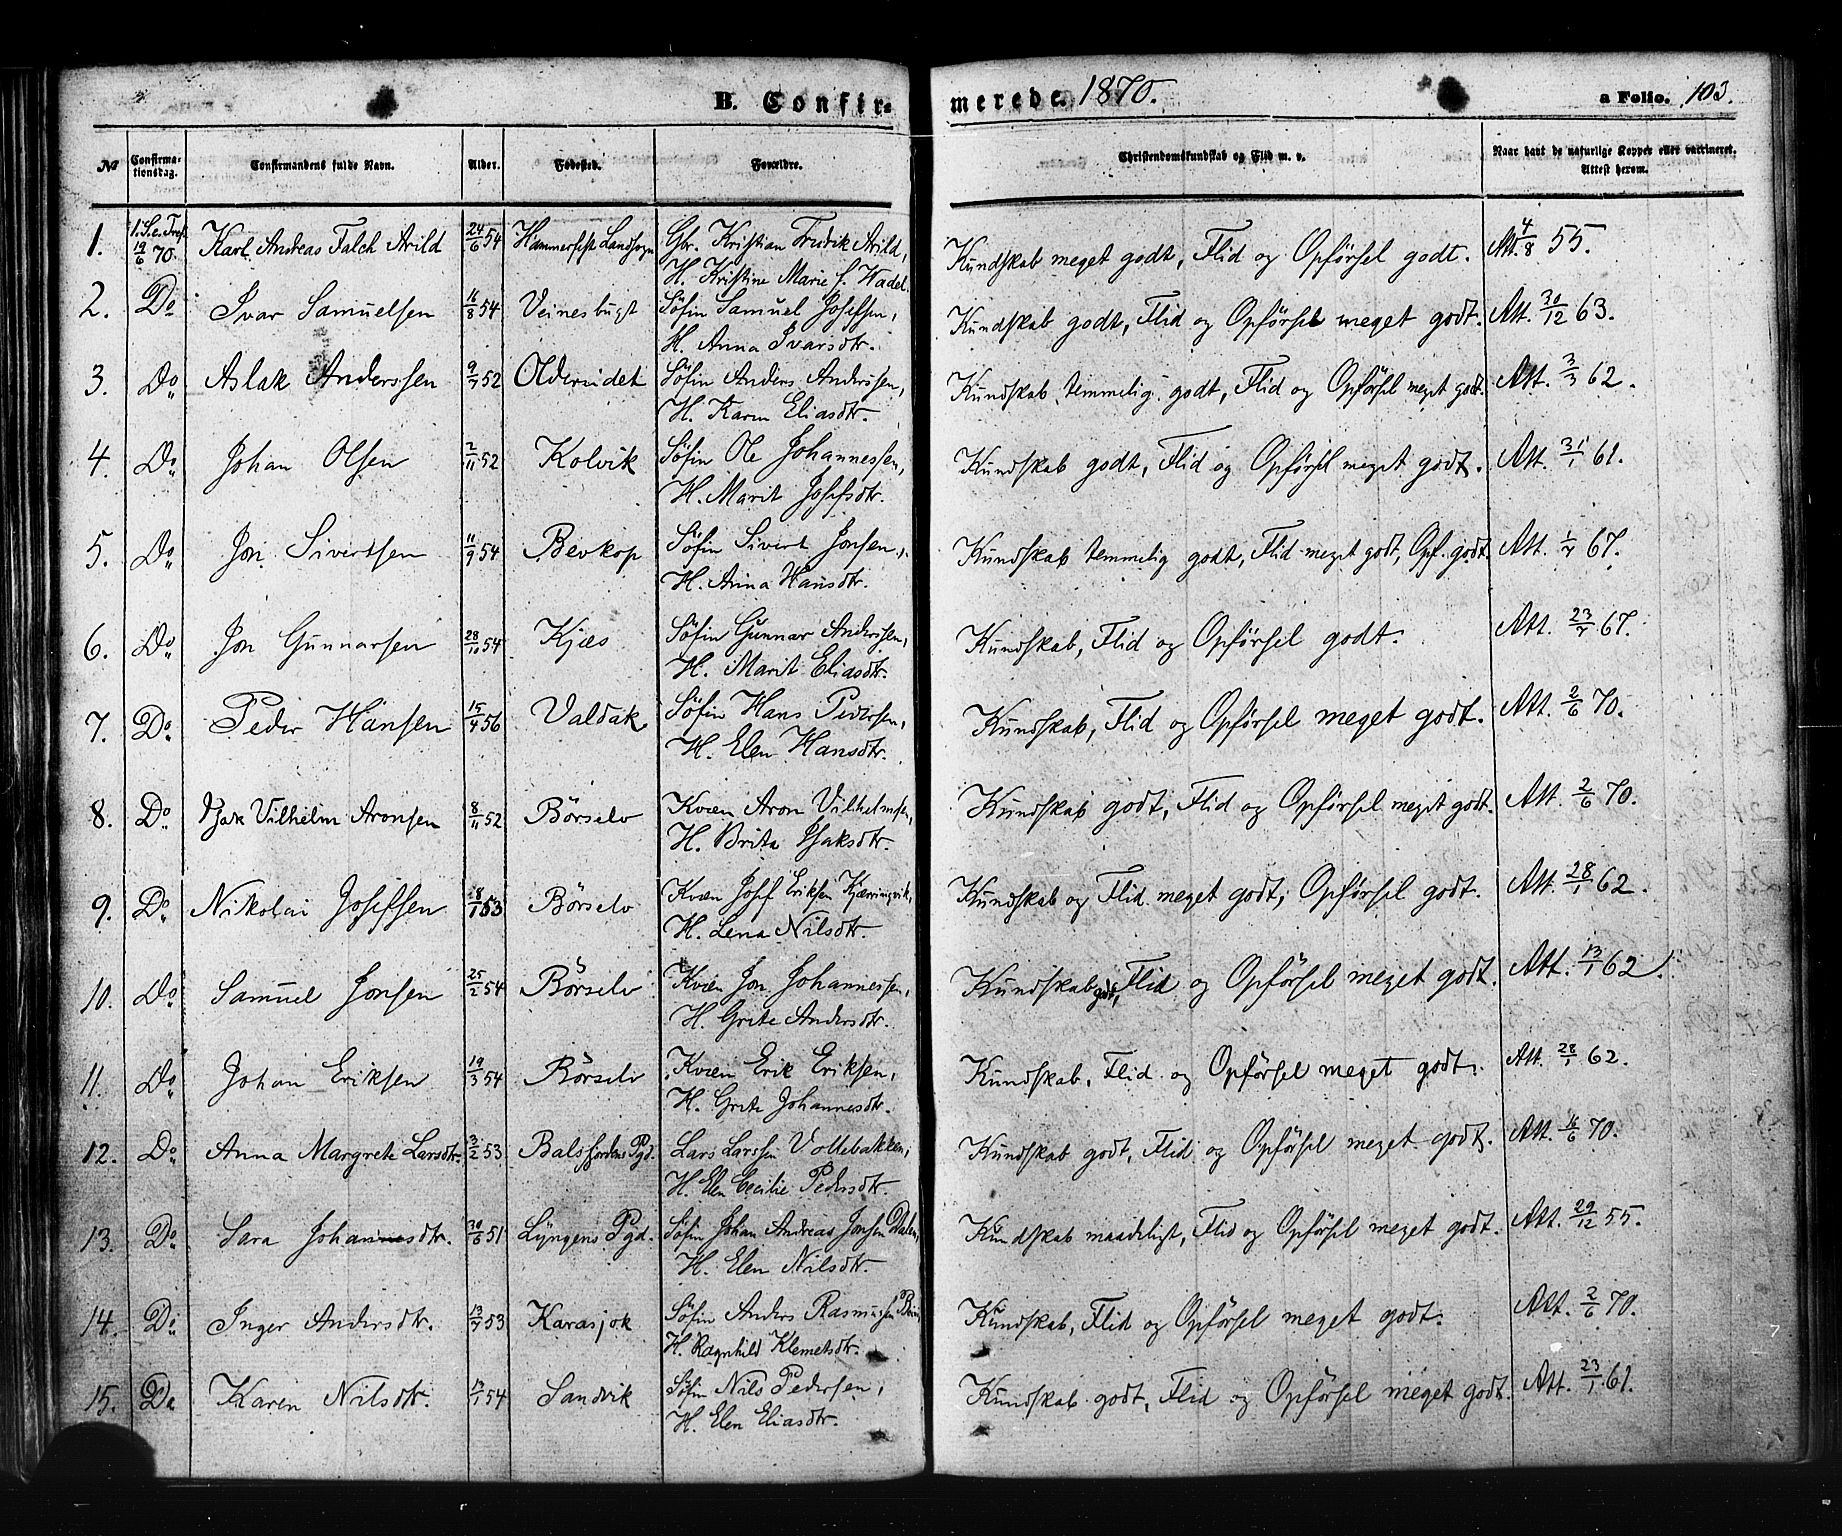 B. Confirmerede. 1870. a Folio. 103.
№ Confirmationsdag. Confirmandens fulde Navn. Alder. Fødested. Forældre. Christendomskundskab og Flid m. v. Naar havt de naturlige Kopper eller vaccineret. Attest herom.
1. 1. S. e. Tref. 19/6 70 Karl Andreas Falch Arild 24/6 54 Hammerfest Landsogn Gbr. Kristian Fredrik Arild, Kundskab meget godt, Flid og Opførsel godt. Att. 4/8 55.
H. Kristine Marie f. Wadel.
2. Do Ivar Samuelsen 16/8 54 Veinesbugt Søfin Samuel Josefsen, Kundskab godt, Flid og Opførsel meget godt. Att. 30/12 63.
H. Anna Ivarsdtr.
3. Do Aslak Anderssen 9/7 52 Olderindet Søfin Anders Anderssen, Kundskab temmelig godt, Flid og Opførsel meget godt. Att. 3/3 62.
H. Karen Eliasdtr.
4. Do Johan Olsen 2/11 52 Kolvik Søfin Ole Johannessen, Kundskab godt, Flid og Opførsel meget godt. Att. 31/1 61.
H. Marit Josefsdtr.
5. Do Jon Sivertsen 11/9 54 Bevkop Søfin Sivert Jonsen, Kundskab temmelig godt, Flid meget godt, Opf. godt. Att. 1/7 67.
H. Anna Hansdtr.
6. Do Jon Gunnarsen 28/10 54 Kjæs Søfin Gunnar Anderssen, Kundskab, Flid og Opførsel godt. Att. 23/7 67.
H. Marit Eliasdtr.
7. Do Peder Hansen 15/4 56 Valdak Søfin Hans Pedersen, Kundskab, Flid og Opførsel meget godt. Att. 2/6 70.
H. Elen Hansdtr.
8. Do Isak Vilhelm Aronsen 8/11 52 Børselv Kvæn Aron Vilhelmsen, Kundskab godt, Flid og Opførsel meget godt. Att. 2/6 70.
H. Brita Isaksdtr.
9. Do Nikolai Josefsen 18/1 53 Børselv Kvæn Josef Eriksen Kjærringvik, Kundskab og Flid meget godt, Opførsel godt. Att. 28/1 62.
H. Lena Nilsdtr.
10. Do Samuel Jonsen 25/2 54 Børselv Kvæn Jon Johannessen, Kundskab godt, Flid og Opførsel meget godt. Att. 13/1 62.
H. Grete Andersdtr.
11. Do Johan Eriksen 19/3 54 Børselv Kvæn Erik Eriksen, Kundskab, Flid og Opførsel meget godt. Att. 28/1 62.
H. Grete Johannesdtr.
12. Do Anna Margrete Larsdtr. 3/2 53 Balsfjordens Pgd. Lars Larssen Voldebakken, Kundskab godt, Flid og Opførsel meget godt. Att. 16/6 70.
H. Elen Cecilie Pedersdtr.
13. Do Sara Johannesdtr. 30/6 51 Lyngens Pgd. Søfin Johan Andreas Jonsen Dalen, Kundskab maadeligt, Flid og Opførsel meget godt. Att. 29/12 55.
H. Elen Nilsdtr.
14. Do Inger Andersdtr. 13/7 53 Karasjok Søfin Anders Rasmussen Kundskab, Flid og Opførsel meget godt. Att. 2/6 70.
H. Ragnhild Klemetsdtr.
15. Do Karen Nilsdtr. 13/1 54 Sandvik Søfin Nils Pedersen, Kundskab godt, Flid og Opførsel meget godt. Att. 23/1 61.
H. Elen Eliasdtr.